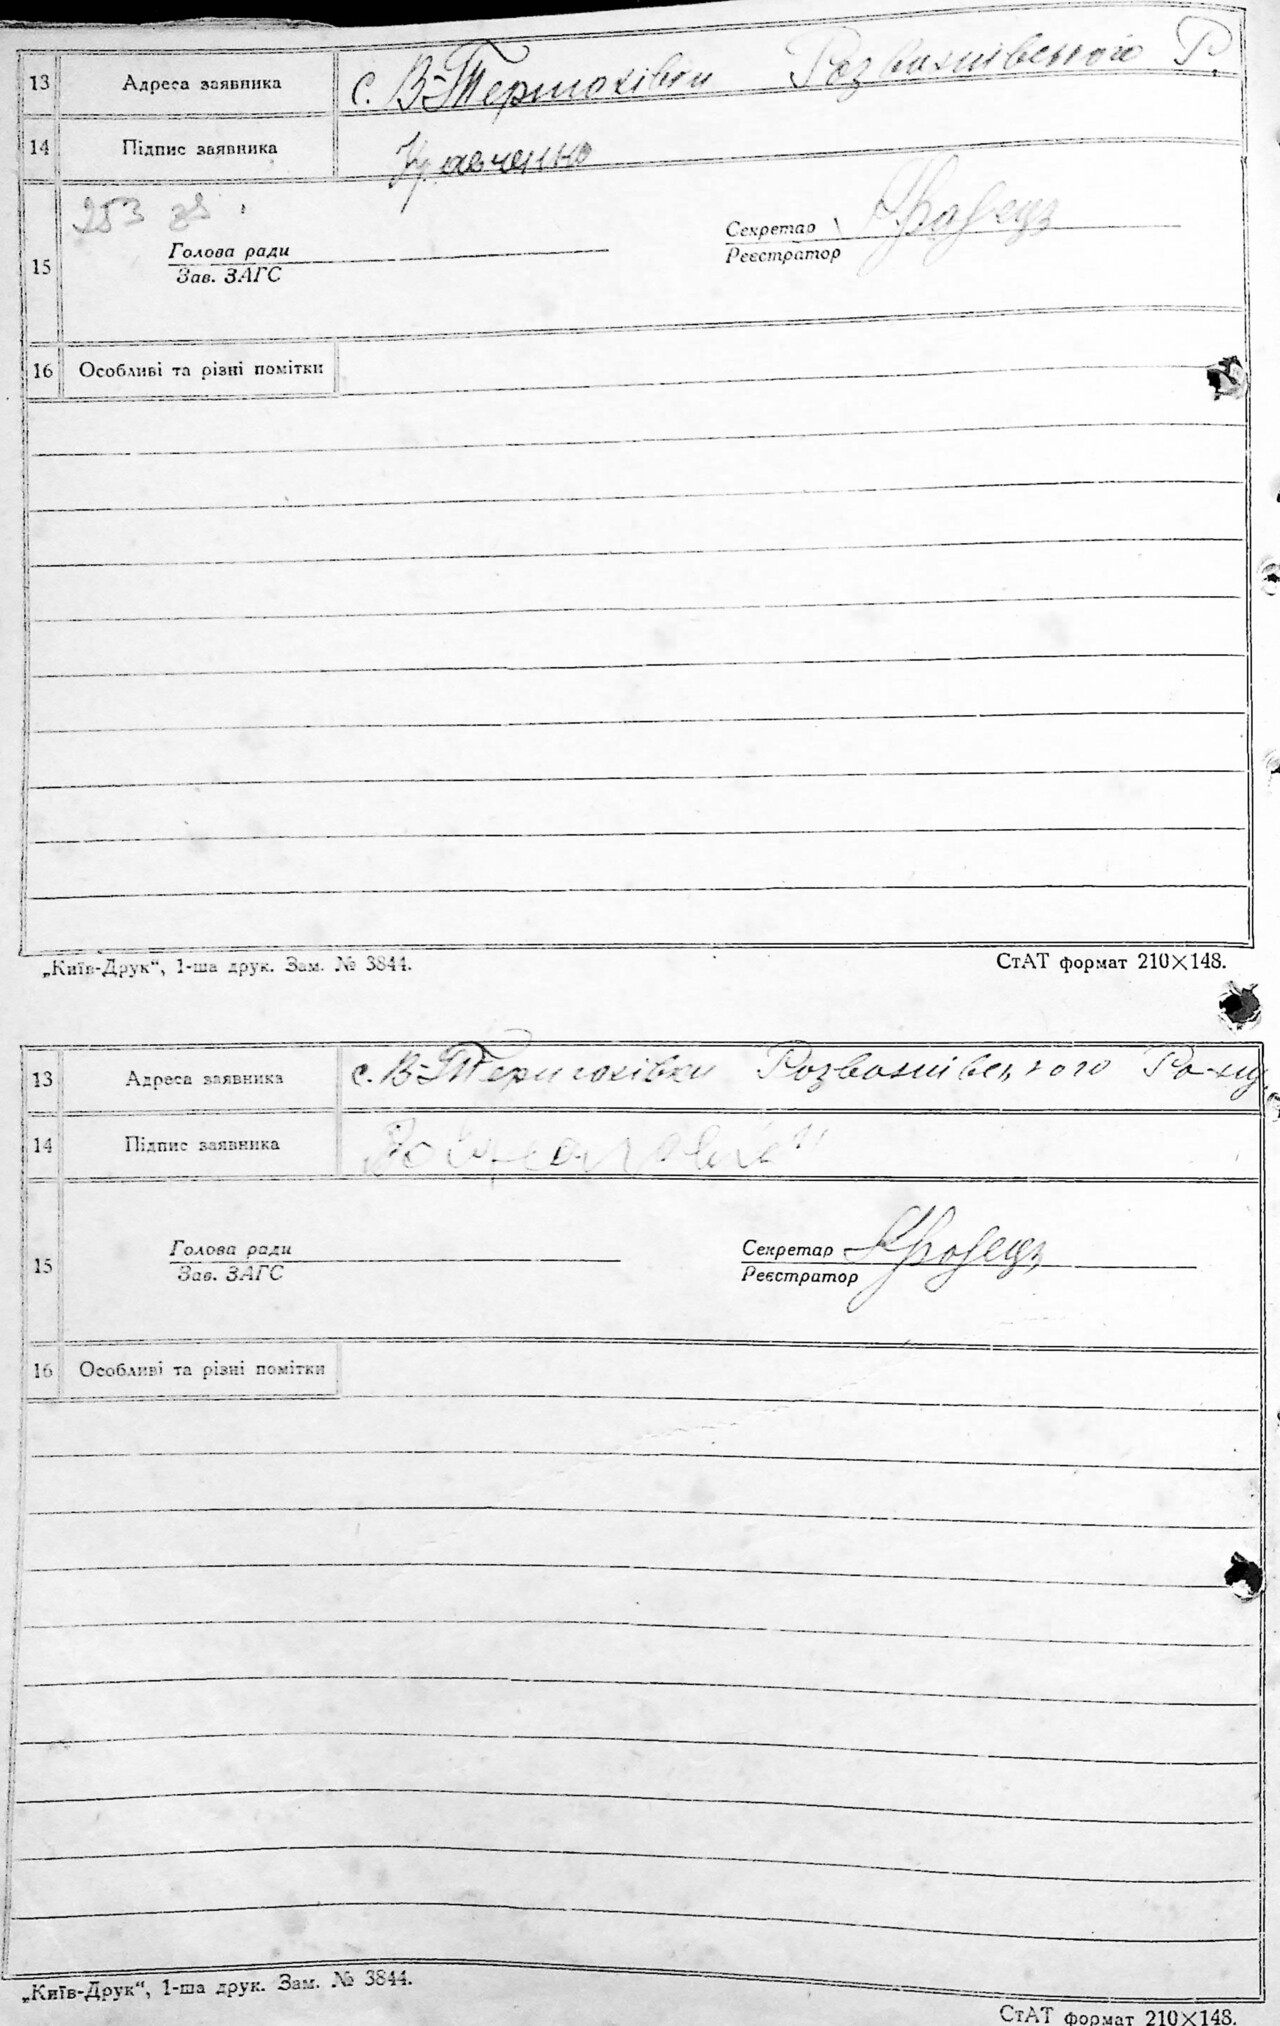 13 Адреса заявника с. В-Термахівки Розважівського Р.
14 Підпис заявника Кравченко
253 зв
15 Голова ради Секретар
Зав. ЗАГС Реєстратор
16 Особливі та різні помітки
„Київ-Друк“, 1-ша друк. Зам. № 3844. СтАТ формат 210×148.
13 Адреса заявника с. В-Термахівки Розважівського Ра-ну
14 Підпис заявника
15 Голова ради Секретар
Зав. ЗАГС Реєстратор
16 Особливі та різні помітки
„Київ-Друк“, 1-ша друк. Зам. № 3844.
СтАТ формат 210×148.